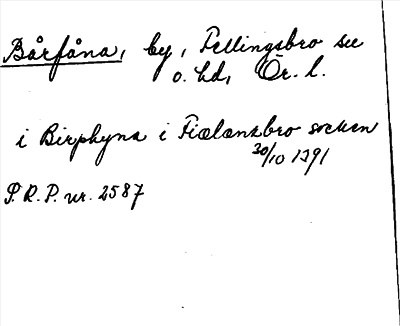 Bårfåna, by, Fellingsbro sn
o. hd, Ör. l.
i Birphyna i Fiælanzbro socken
30/10 1391
P.R.P. nr. 2587